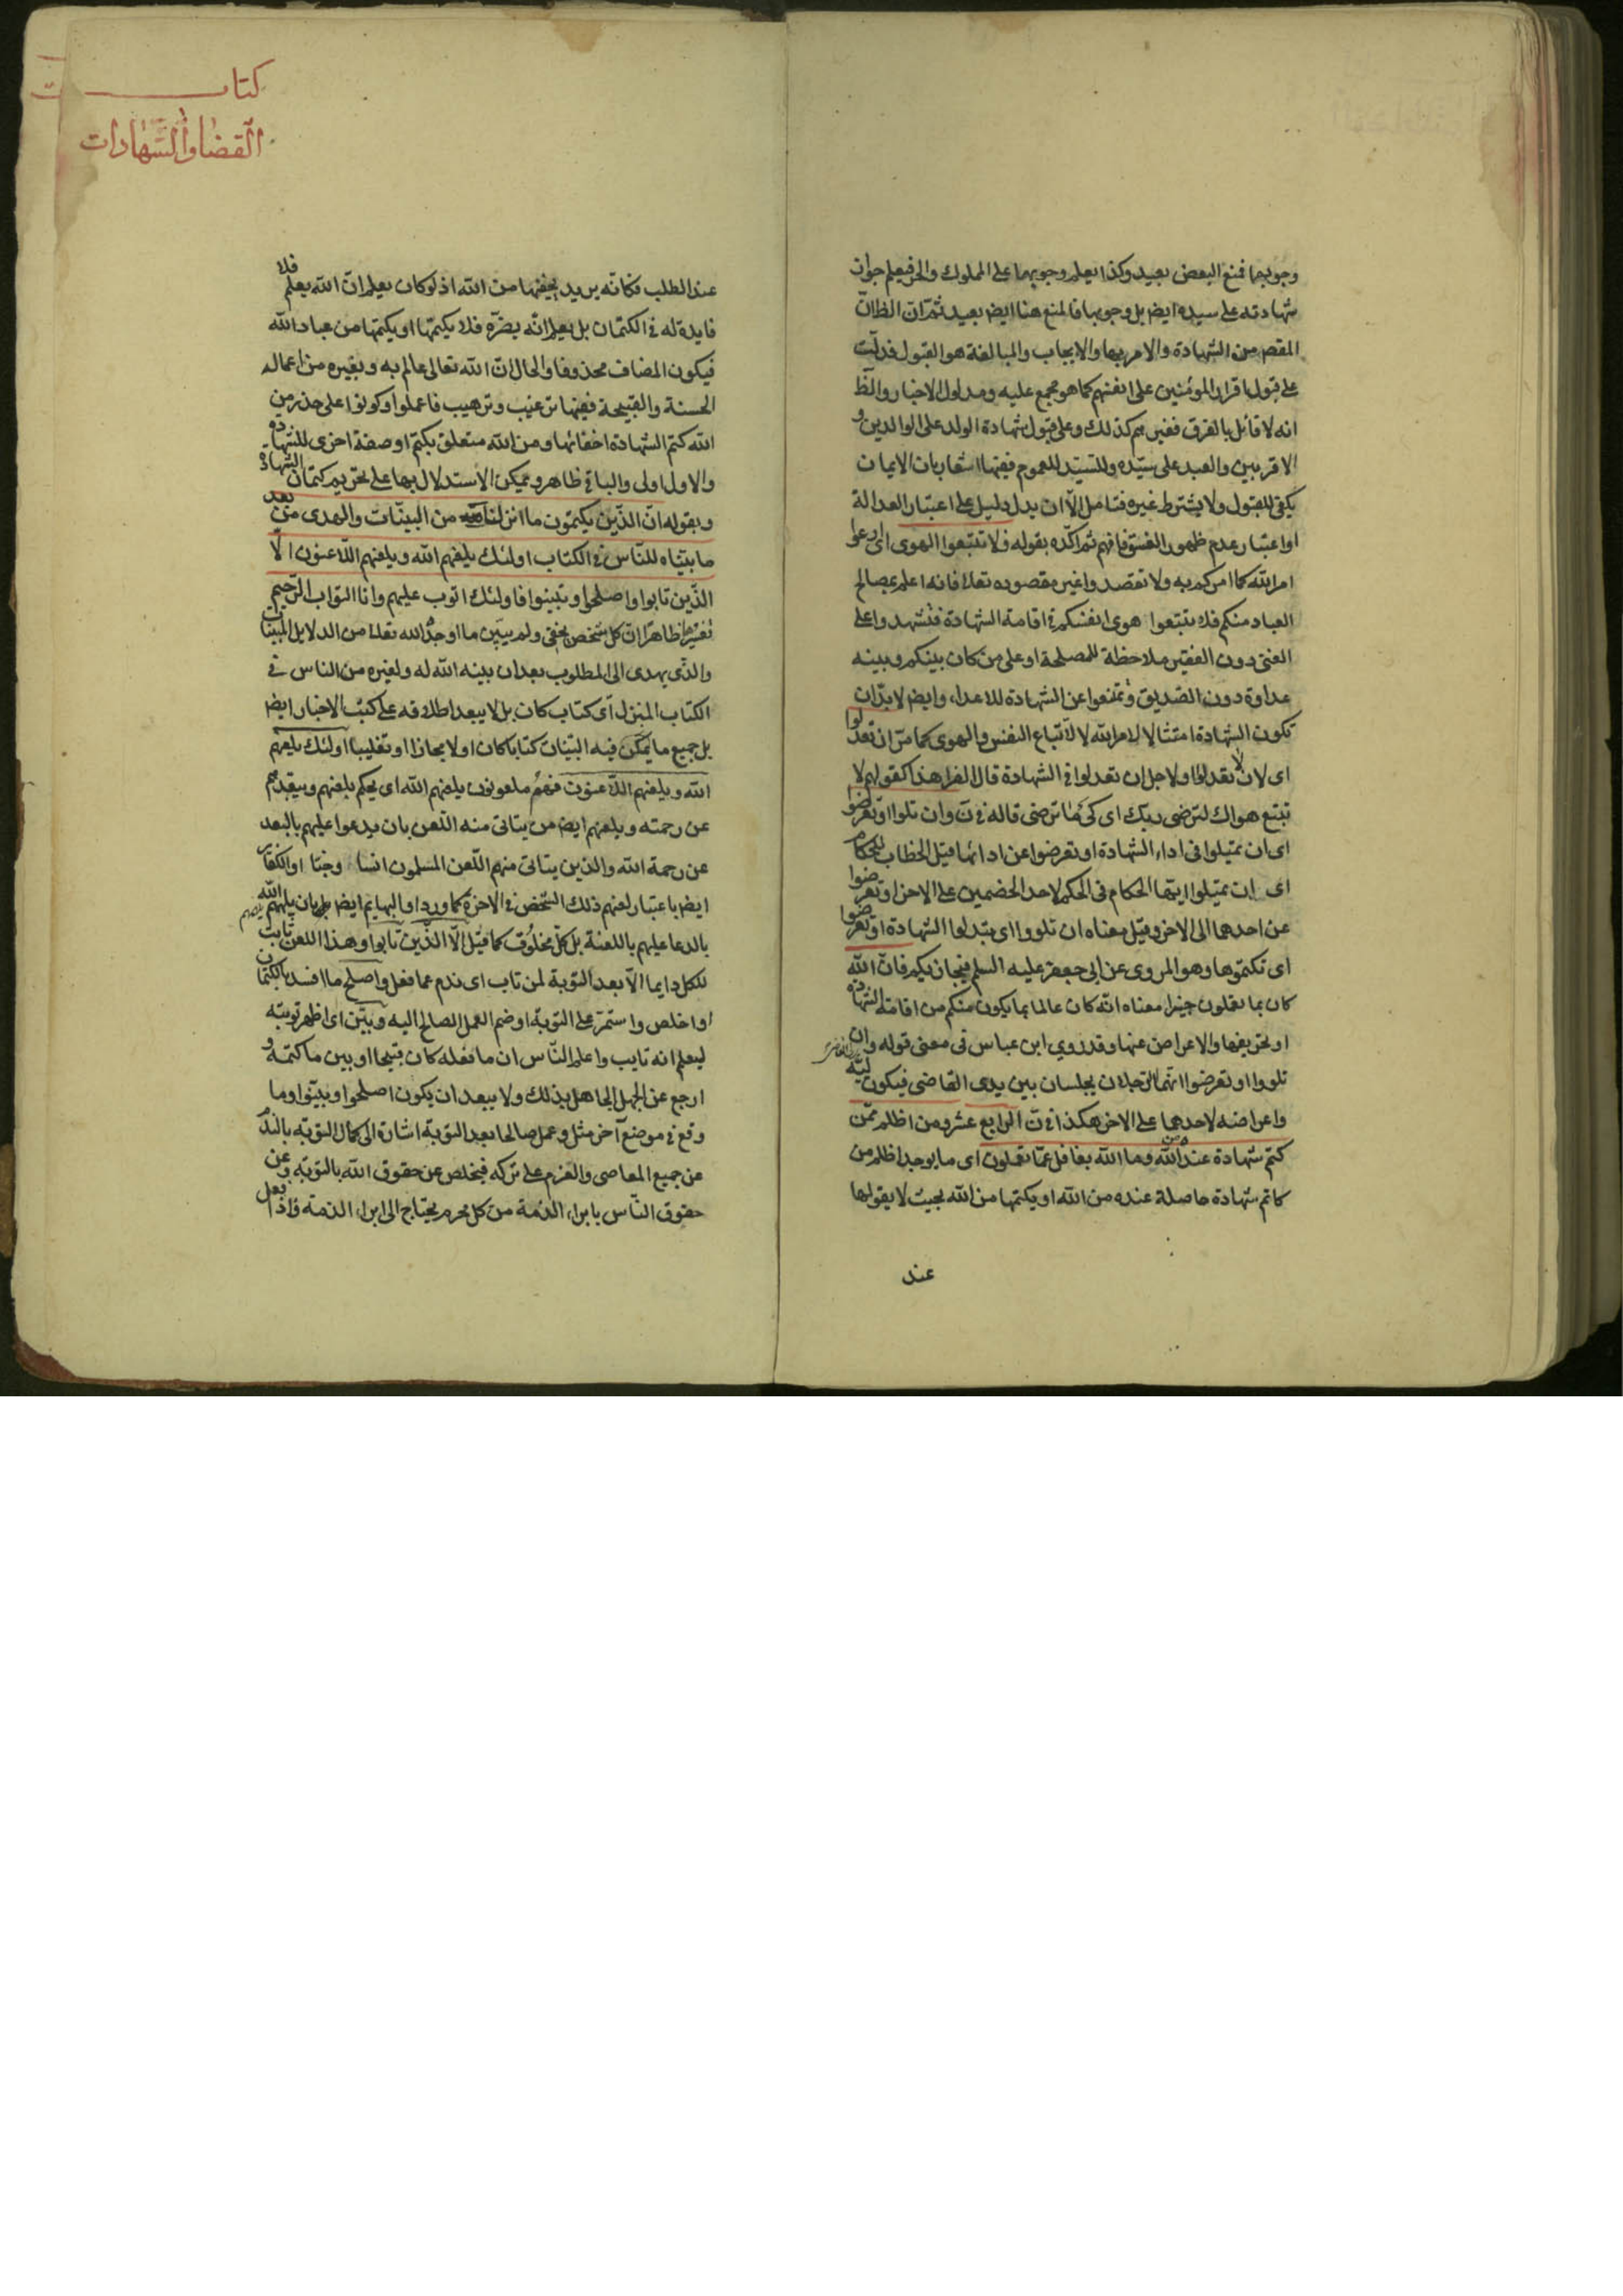 وجوبها فمنع البعض بعيد وكذا يعلم وجوبهما على المملوك والحر فيعلم جواز
شهادته على سيده ايض بل وجوبها فالمنع هنا ايض بعيد ثم ان الظ ان
المقص من الشهادة والامر بها والايجاب والمبالغة هو القبول فدلت
على قبول اقرار المؤمنين على انفسهم كما هو مجمع عليه ومدلول الاخبار والظ
انه لا قائل بالفرق فغيرهم كذلك وعلى قبول شهادة الولد على الوالدين و
الاقربين والعبد على سيده وللسيد للعموم ففيها اشعار بان الايمان
يكفى للقبول ولا يشترط غيره فتامل الا ان يدل دليل على اعتبار العدالة
او اعتبار عدم ظهور الفسق فافهم ثم اكده بقوله فلا تتبعوا الهوى اى راعوا
امر الله كما امركم به ولا تقصدوا غير مقصوده تعالى فانه اعلم بمصالح
العباد منكم فلا تتبعوا هوى انفسكم فى اقامة الشهادة فتشهدوا على
الغنى دون الفقير ملاحظة للمصلحة او على من كان بينكم وبينه
عداوة دون الصديق وتمنعوا عن الشهادة للاعداء وايض لا بد ان
تكون الشهادة امتثالا لامر الله لا لاتباع النفس والهوى كما مر ان تعدلوا
اى لان لا تعدلوا او لاجل ان تعدلوا فى الشهادة قال الفرا هذا كقولهم لا
تتبع هواك لترضى ربك اى كى ما ترضى قاله فى ن وان تلوا او تعرضوا
اى ان تميلوا فى اداء الشهادة او تعرضوا عن ادائها قيل الخطاب للحكام
اى ان تميلوا ايها الحكام فى الحكم لاحد الخصمين على الاخر او تعرضوا
عن احدهما الى الاخر وقيل معناه ان تلووا اى تبدلوا الشهادة او تعرضوا
اى تكتموها وهو المروى عن ابى جعفر عليه السلم فيجازيكم فان الله
كان بما تعملون خبيرا معناه انه كان عالما بما يكون منكم من اقامة الشهادة
او تحريفها والاعراض عنها وقد روى ابن عباس فى معنى قوله وان
تلووا او تعرضوا انهما الرجلان يجلسان بين يدى القاضى فيكون ليّه
واعراضه لاحدهما على الاخر هكذا فى ن الرابع عشر ومن اظلم ممن
كتم شهادة عنده من الله وما الله بغافل عما تعملون اى ما يوجد اظلم من
كاتم شهادة حاصلة عنده من الله او يكتمها من الله بحيث لا يقولها
عند
كتاب
القضا والشهادات
عند الطلب فكانه يريد يخفيها من الله اذ لو كان يعلم ان الله يعلم فلا
فايدة له فى الكتمان بل يعلم انه يضره فلا يكتمها او يكتمها من عباد الله
فيكون المضاف محذوفا والحال ان الله تعالى عالم به وبغيره من اعماله
الحسنة والقبيحة ففيها ترغيب وترهيب فاعملوا وكونوا على حذر من
الله كتم الشهادة اخفائها ومن الله متعلق بكتم او صفة اخرى للشهادة
والاول اولى والباقى ظاهر ويمكن الاستدلال بها على تحريم كتمان الشهادة
وبقوله ان الذين يكتمون ما انزلنا من البينات والهدى من بعد
ما بيناه للناس فى الكتاب اولئك يلعنهم الله ويلعنهم اللاعنون الا
الذين تابوا واصلحوا وبينوا فاولئك اتوب عليهم وانا التواب الرحيم
تفسيرها ظاهرا ان كل شخص يخفى ولم يبين ما اوجد الله تعالى من الدلايل المبينات
والذى يهدى الى المطلوب بعد ان بينه الله له ولغيره من الناس فى
الكتاب المنزل اى كتاب كان بل لا يبعد اطلاقه على كتب الاخبار ايض
بل جميع ما يمكن فيه البيان كتابا كان او لا مجازا او تغليبا اولئك يلعنهم
الله ويلعنهم اللاعنون فهم ملعونون يلعنهم الله اى يحكم بلعنهم ويبعدهم
عن رحمته ويلعنهم ايض من يتاتى منه اللعن بان يدعوا عليهم بالبعد
عن رحمة الله والذين يتاتى منهم اللعن المسلمون انسا وجنا او الكفار
ايض باعتبار لعنهم ذلك الشخص فى الاخرة كما ورد او البهايم ايض بل بان يلهمهم الله
بالدعا عليهم باللعنة بل كل مخلوق كما قيل الا الذين تابوا وهذا اللعن ثابت
للكل دايما الا بعد التوبة لمن تاب اى ندم عما فعل واصلح ما افسد بالكتمان
او اخلص واستمر على التوبة او ضم العمل الصالح اليه وبين اى اظهر توبته
ليعلم انه تايب واعلم الناس ان ما فعله كان قبيحا او بين ما كتمه و
ارجع عن الجهل الجاهل بذلك ولا يبعد ان يكون اصلحوا وبينوا وما
وقع فى موضع آخر مثل وعمل صالحا بعد التوبة اشارة الى كمال التوبة بالندم
عن جميع المعاصى والعزم على تركه فيخلص عن حقوق الله بالتوبة وعن
حقوق الناس بابراء الذمة من كل محرم يحتاج الى ابراء الذمة فاذا فعل